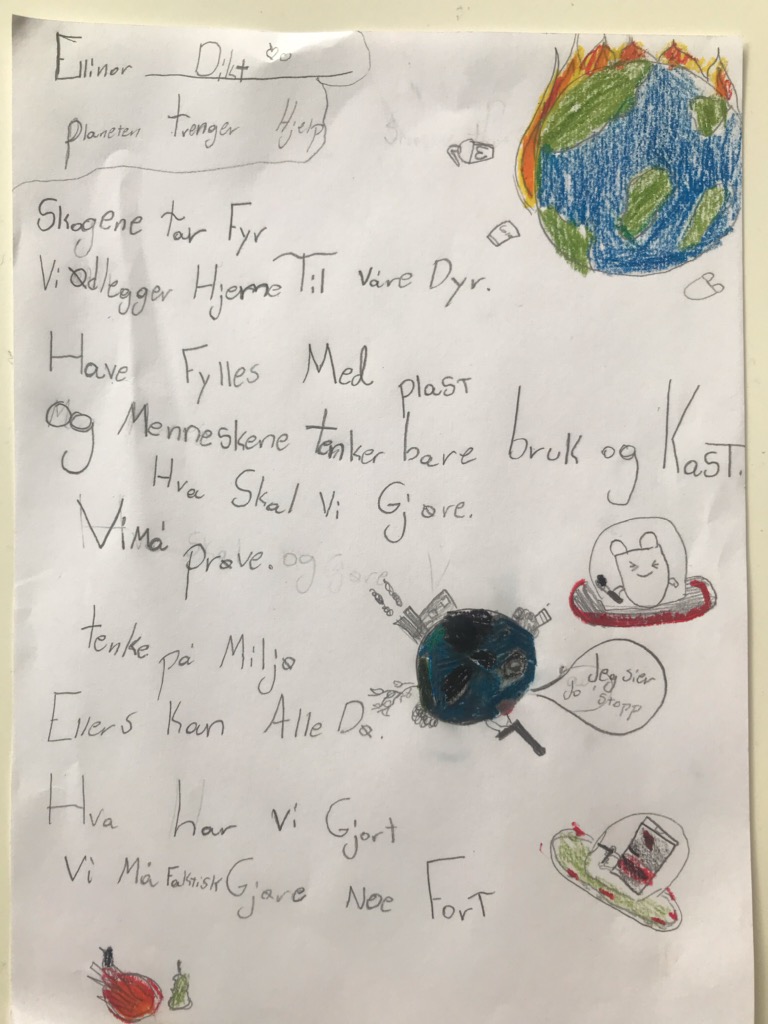 Ellinor Dikt
planeten trenger Hjelp
Skogene tar Fyr
Vi ødlegger Hjeme Til våre Dyr.
Have Fylles Med plast
Og Menneskene tenker bare bruk og Kast.
Hva Skal Vi Gjøre.
Vi Må prøve.
og Gjøre V
tenke på Miljø
Ellers Kan Alle Dø.
Jeg sier
Jo Stopp
Hva har Vi Gjort
Vi Må Faktisk Gjøre Noe Fort